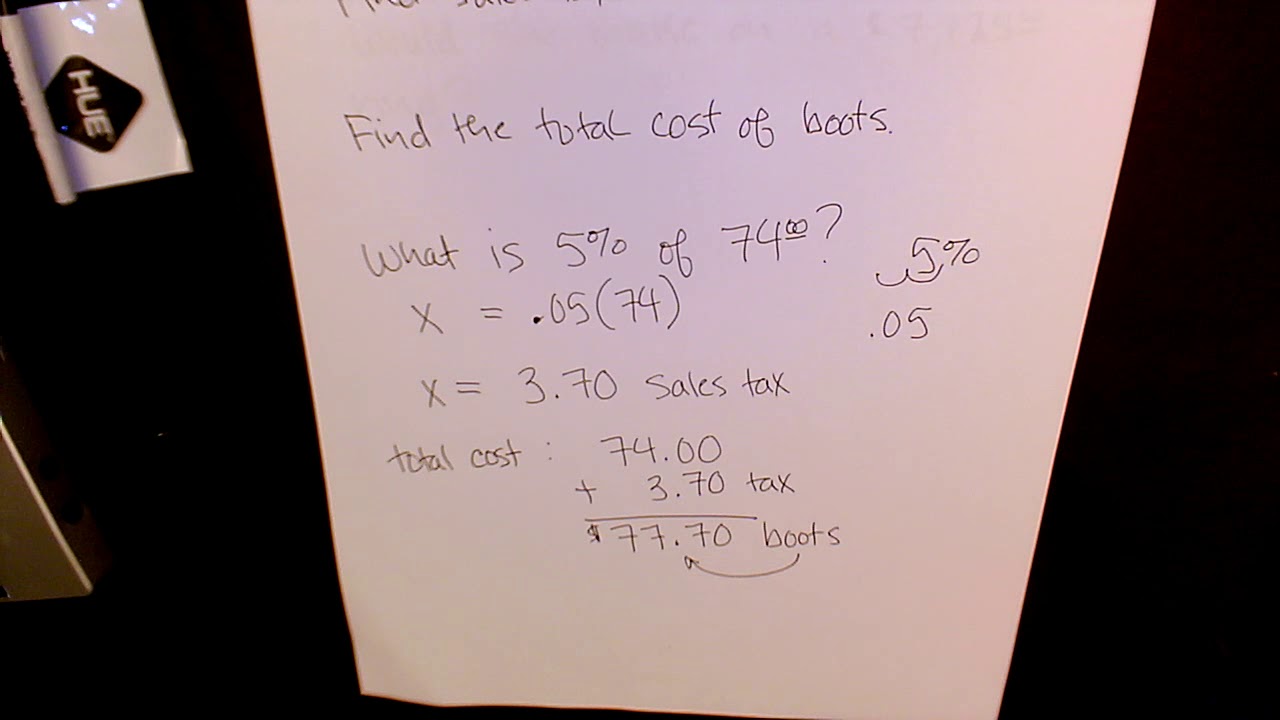 HUE
Find the total cost of boots.
What is 5% of 74⁰⁰?
5%
x = .05(74)
.05
x = 3.70 sales tax
total cost : 74.00
+ 3.70 tax
$77.70 boots